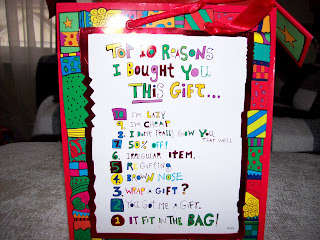 Top 10 Reasons
I Bought You
THIS Gift...
10. I'M LAZY
9. I'M CHEAP
8. I DON'T REALLY KNOW YOU
THAT WELL
7. 50% OFF!
6. IRREGULAR ITEM.
5. REGIFTING
4. BROWN NOSE
3. WRAP A GIFT?
2. YOU GOT ME A GIFT.
1 IT FIT IN THE BAG!